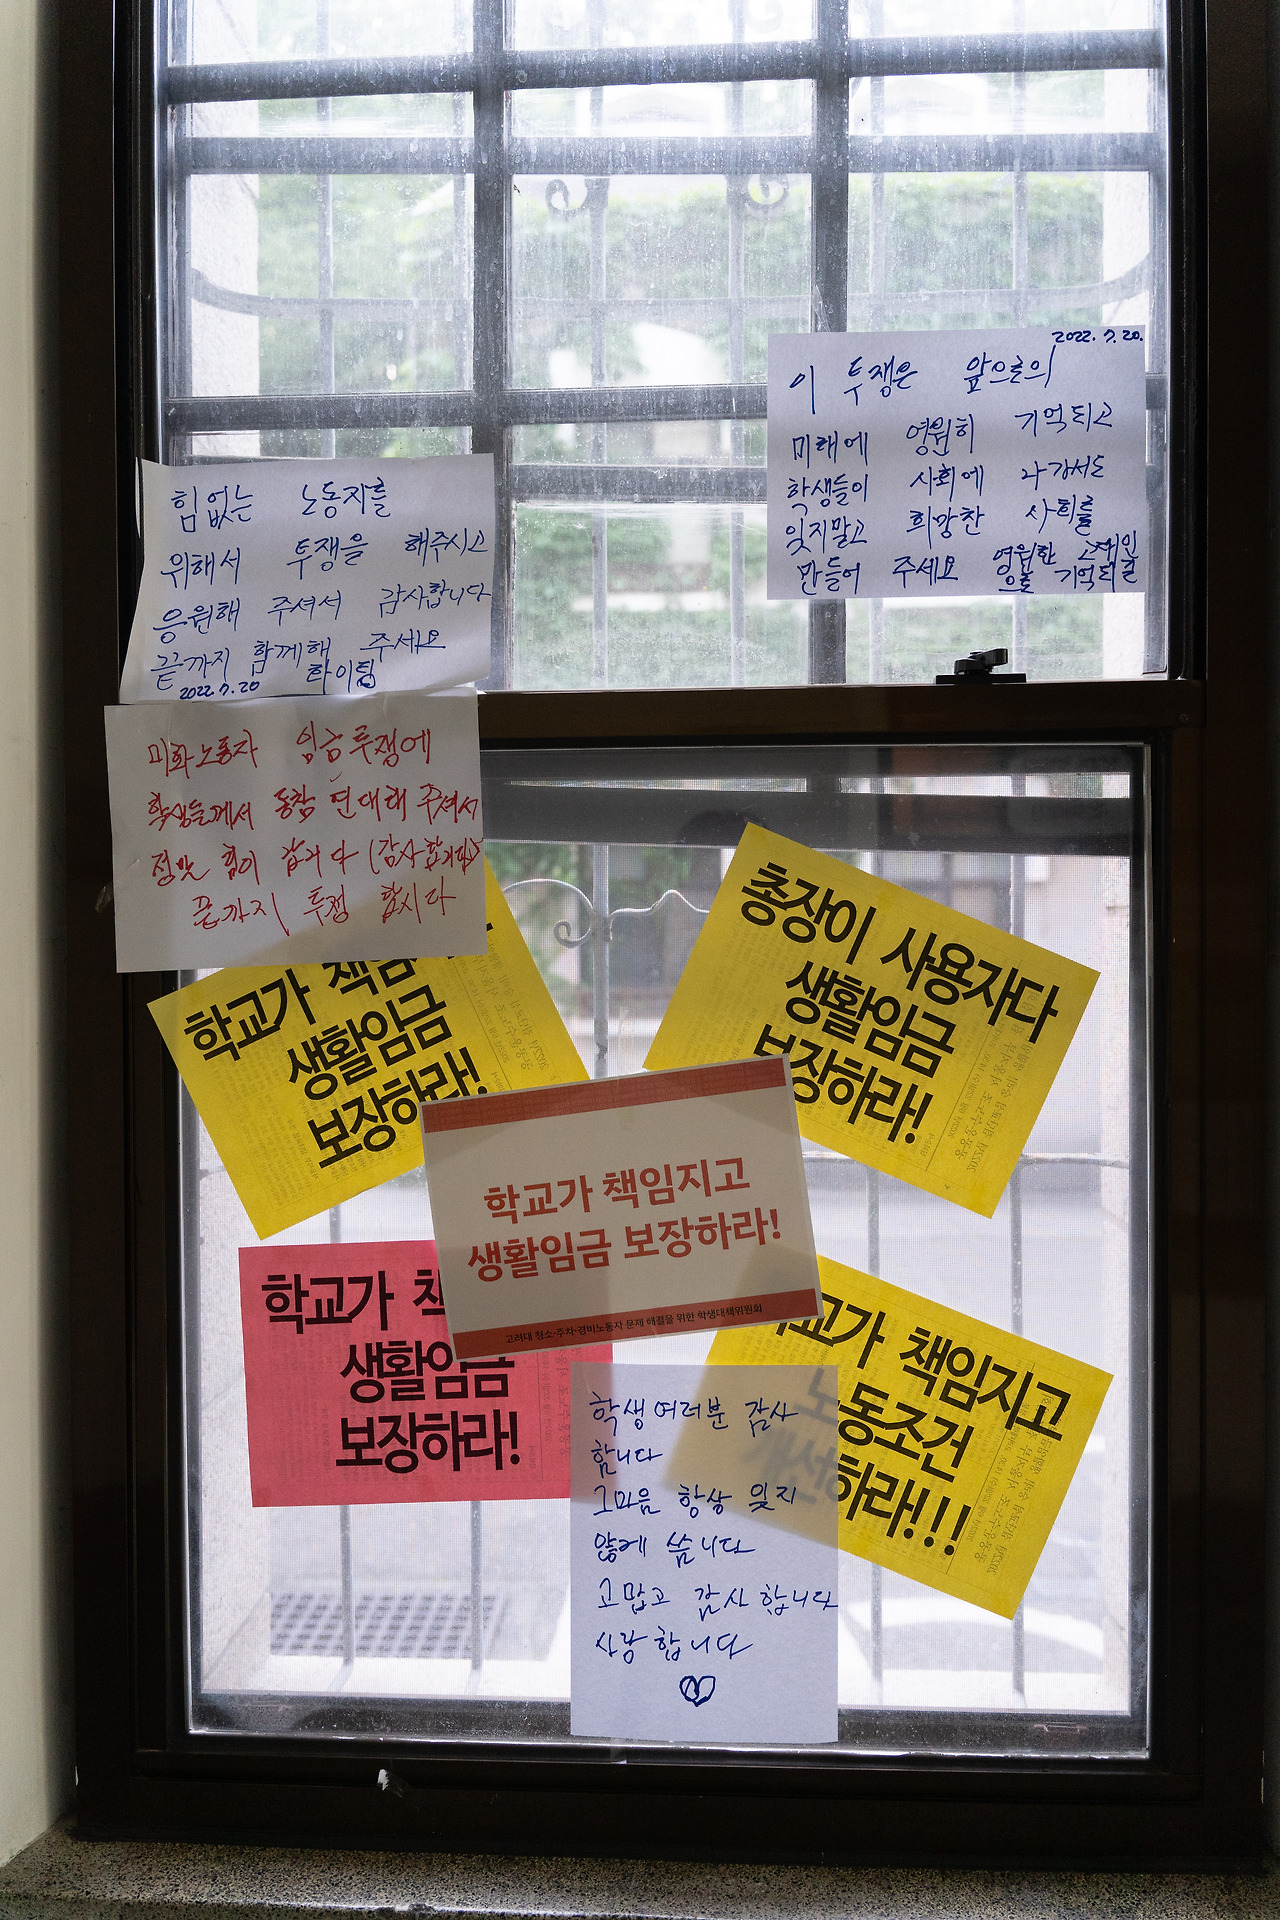 2022. 7. 20.
이 투쟁은 앞으로의
미래에 영원히 기억되고
학생들이 사회에 나가서도
잊지말고 희망찬 사회를
만들어 주세요 영원한
으로 기억되길
힘없는 노동자를
위해서 투쟁을 해주시고
응원해 주셔서 감사합니다
끝까지 함께해 주세요
2022. 7. 20 화이팅
미화노동자 임금투쟁에
학생들께서 동참 연대해 주셔서
정말 힘이 납니다 (감사합니다)
끝까지 투쟁 합시다
학교가 책임
생활임금
보장하라!
총장이 사용자다
생활임금
보장하라!
학교가 책임지고
생활임금 보장하라!
고려대 청소·주차·경비노동자 문제 해결을 위한 학생대책위원회
학교가 책
생활임금
보장하라!
학교가 책임지고
노동조건
개선하라!!!
학생여러분 감사
합니다
그마음 항상 잊지
않게 씀니다
고맙고 감사합니다
사랑합니다